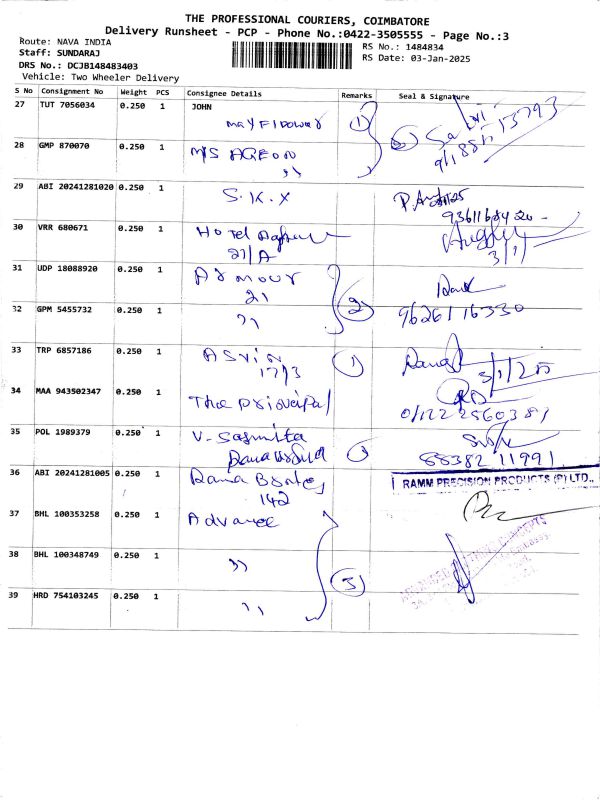 THE PROFESSIONAL COURIERS, COIMBATORE
Delivery Runsheet - PCP - Phone No.:0422-3505555 - Page No.:3
Route: NAVA INDIA
RS No.: 1484834
Staff: SUNDARAJ
RS Date: 03-Jan-2025
DRS No.: DCJB148483403
Vehicle: Two Wheeler Delivery
S No Consignment No Weight PCS Consignee Details Remarks Seal & Signature
27 TUT 7056034 0.250 1 JOHN
1
28 GMP 870070 0.250 1 M/S AGEON
"
29 ABI 20241281020 0.250 1 S.K.X
30 VRR 680671 0.250 1 Hotel
21/A
3/1/
31 UDP 18088920 0.250 1 Armour
21
2
32 GPM 5455732 0.250 1 "
9626116330
33 TRP 6857186 0.250 1 ASVIN
17/3
1
3/1/25
34 MAA 943502347 0.250 1 The
0422 2560381
35 POL 1989379 0.250 1 V-Sasmita
88382 11991
36 ABI 20241281005 0.250 1 Rama
142
RAMM PRECISION PRODUCTS (P) LTD.,
37 BHL 100353258 0.250 1 Advance
38 BHL 100348749 0.250 1 "
3
39 HRD 754103245 0.250 1 "